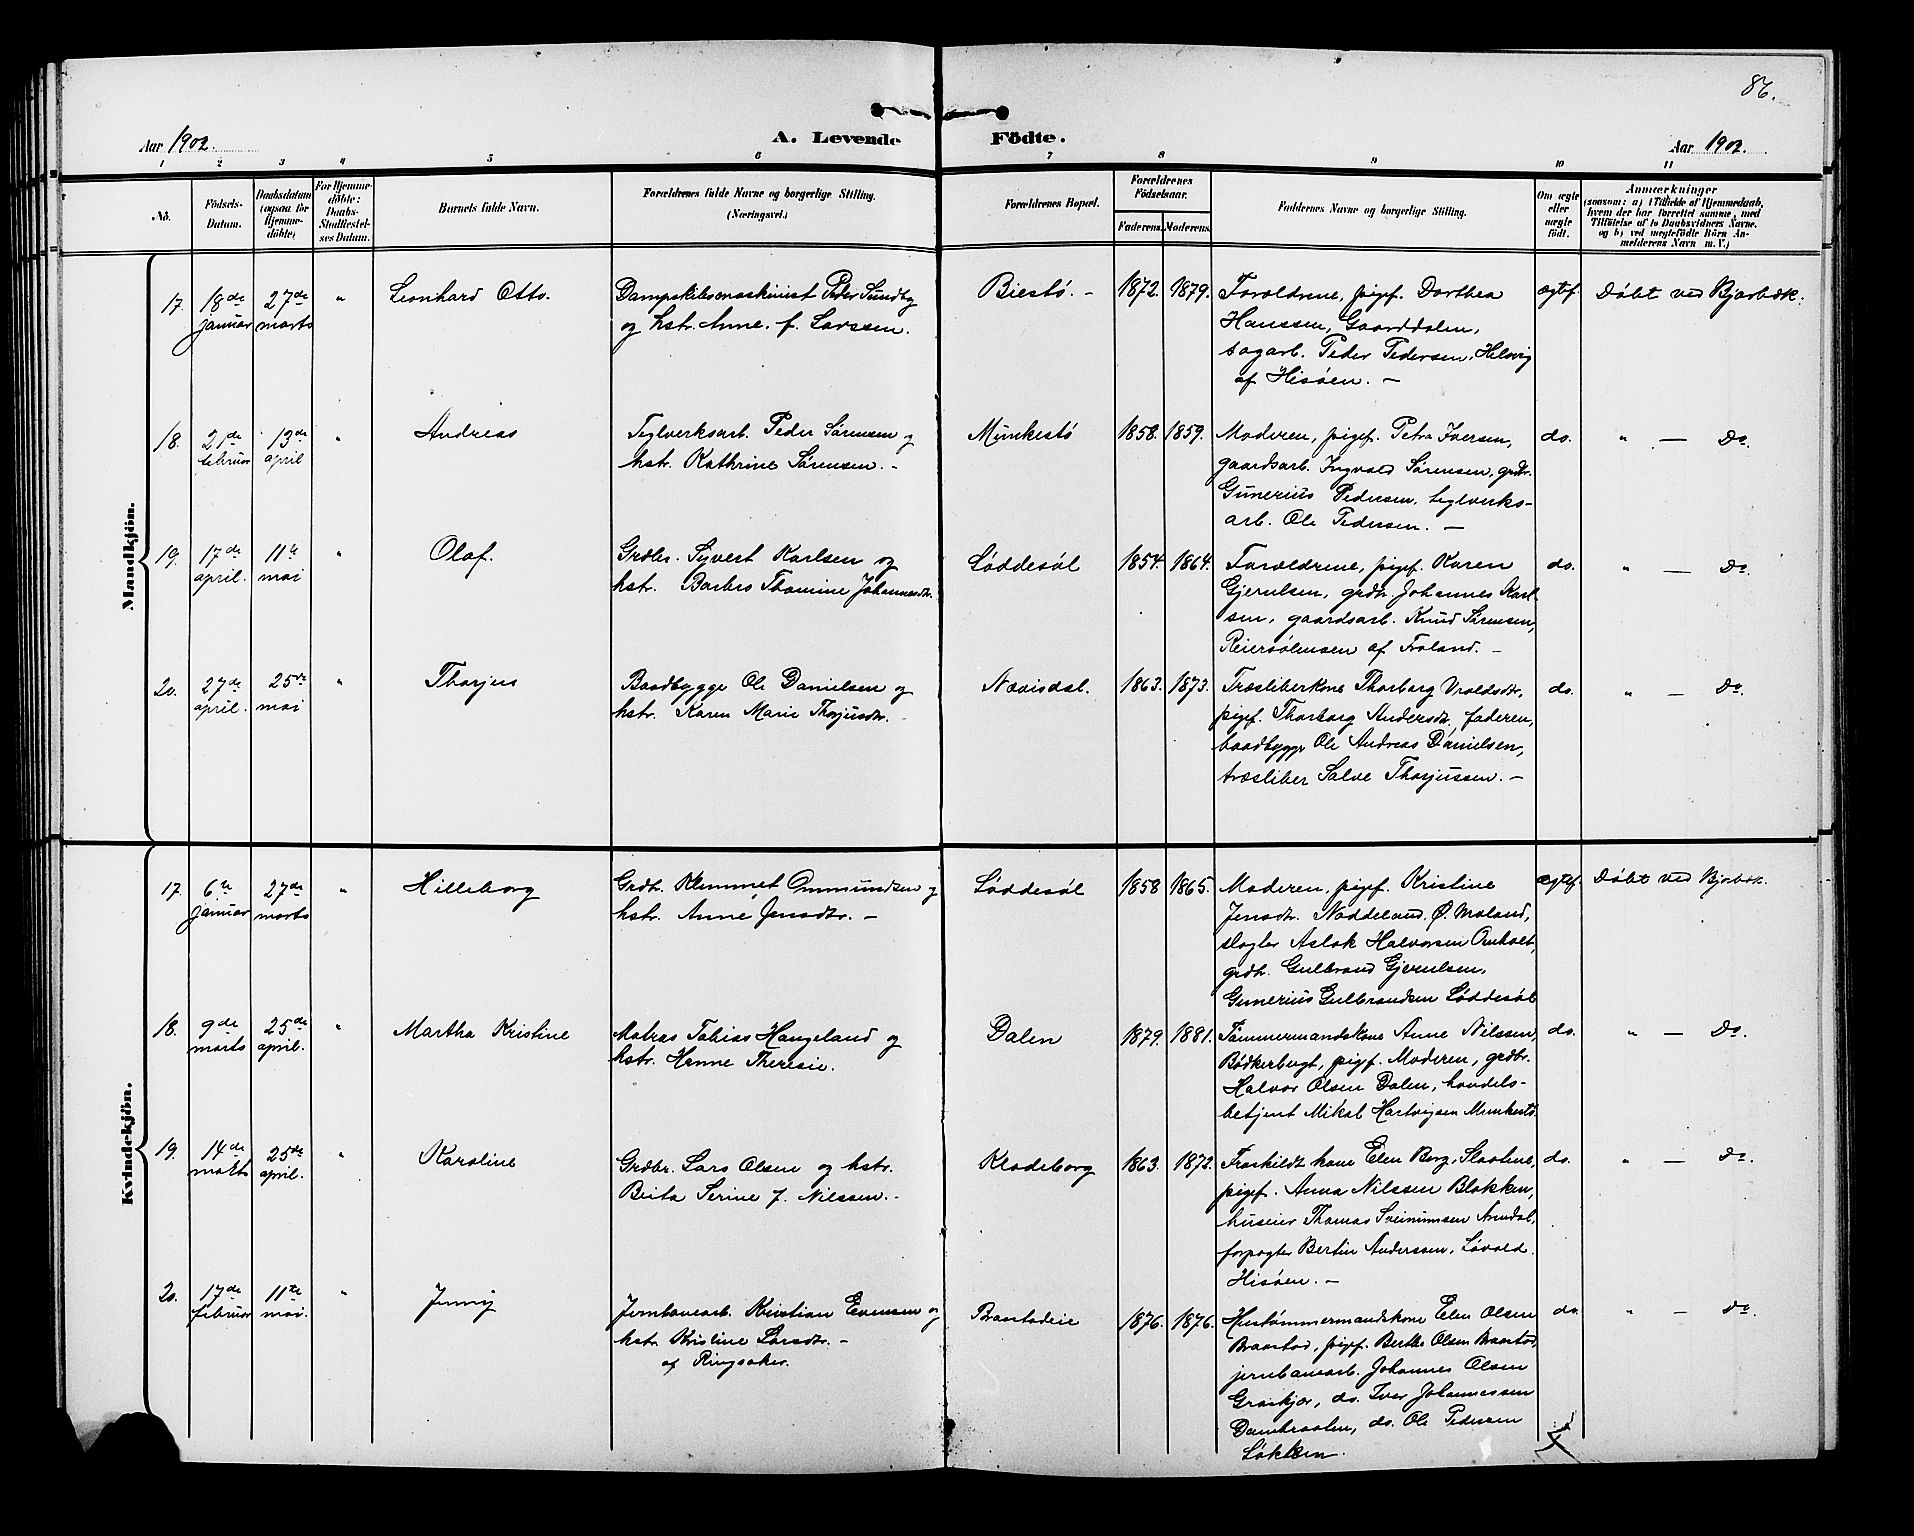 86.
Aar 1902.
A. Levende Födte.
Aar 1902.
1 2 3 4 5 6 7 8 9 10 11
No.
Födsels-
Datum.
Daabsdatum
(ogsaa for
Hjemme-
döbte)
For Hjemme-
döbte:
Daabs-
Stadfæstel-
ses Datum.
Barnets fulde Navn.
Forældrenes fulde Navne og borgerlige Stilling.
(Næringsvei.)
Forældrenes Bopæl.
Forældrenes
Födselsaar.
Faderens. Moderens.
Faddernes Navne og borgerlige Stilling.
Om ægte
eller
uægte
født.
Anmærkninger
(saasom: a) i Tilfælde af Hjemmedaab,
hvem der har forrettet samme, med
Tilföielse af to Daabsvidners Navne.
og b) ved uægtefödte Börn An-
melderens Navn m. V.)
Mandkjön.
17. 18de januar
27de marts
"
Leonhard Otto.
Dampskibsmaskinist Peder Sundby
og hstr. Anne. f. Larssen.
Biestø. -
1872. 1879.
Forældrene, pigef. Dorthea
Hanssen, Gaarddalen,
sagarb. Peder Pedersen, Helvig
af Hisøen. -
ægtef.
Døbt ved Bjorbæk.
18. 21de februar
13de april
"
Andreas
Teglverksarb. Peder Sørensen og
hstr. Kathrine Sørensen. -
Munkestø
1858. 1859.
Moderen, pigef. Petra Iversen,
gaardsarb. Ingvald Sørensen, grdbr.
Gunerius Pedersen, teglverks-
arb. Ole Pedersen. -
do.
" - Do.
19. 17de april.
11te mai
"
Olaf.
Grdbr. Syvert Karlsen og
hstr. Barbro Thomine Johannesdtr.
Løddesøl
1854. 1864.
Forældrene, pigef. Karen
Gjerulsen, grdbr. Johannes Karl-
sen, gaardsarb. Knud Sørensen,
Reiersølmsen af Froland. -
do.
" - Do.
20. 27de april.
25de mai
"
Thorjus
Baadbygge Ole Danielsen og
hstr. Karen Marie Thorjusdtr. -
Nævisdal.
1863. 1873.
Træsliberkone Thorborg Vroldsdtr,
pigef. Thorborg Andersdtr. faderen,
baadbygge Ole Andreas Danielsen,
træsliber Salve Thorjussen. -
do.
" - Do.
Kvindekjön.
17. 6te januar
27de marts
"
Hilleborg
Grdbr. Klemmet Ommundsen og
hstr. Anne Jensdtr. -
Løddesøl
1858 1865.
Moderen, pigef. Kristine
Jensdtr. Naddeland. Ø. Moland,
slagter Aslak Halvorsen Omholt,
grdbr. Gulbrand Gjerulsen,
Gunerius Gulbrandsen Løddesøl
ægtef.
Døbt ved Bjorbæk.
18. 9de marts
25de april.
"
Martha Kristine
Matros Tobias Haugeland og
hstr. Hanne Theresie.
Dalen
1879. 1881.
Tømmermandskone Anne Nilssen,
Bødkerbugt, pigef. Moderen, grdbr.
Halvor Olsen Dalen, handels-
betjent Mikal Hartvigsen Munkestø
do.
" - Do.
19. 14de marts
25de april.
"
Karoline
Grdbr. Lars Olsen og hstr.
Berta Serine f. Nilssen. -
Klodeborg
1863. 1872.
Fraskildt kone Elen Berg, Slaatene,
pigef. Anna Nilssen Blakken,
huseier Thomas Sveinumsen Arendal,
forpagter Bertin Anderssen, Løvold
Hisøen. -
do.
" - Do.
20. 17de februar
11te mai.
"
Jenny
Jernbanearb. Kristian Evensen og
hstr. Kristine Larsdtr. -
af Ringsaker.
Braastadeie
1876. 1876.
Hustømmermandskone Elen Olsen
Braastad, pigef. Berthe Olsen Braastad,
jernbanearb. Johannes Olsen
Graakjær, do. Iver Johannessen
Dambraaten, do. Ole Pedersen
Løkken.
do.
" - Do.